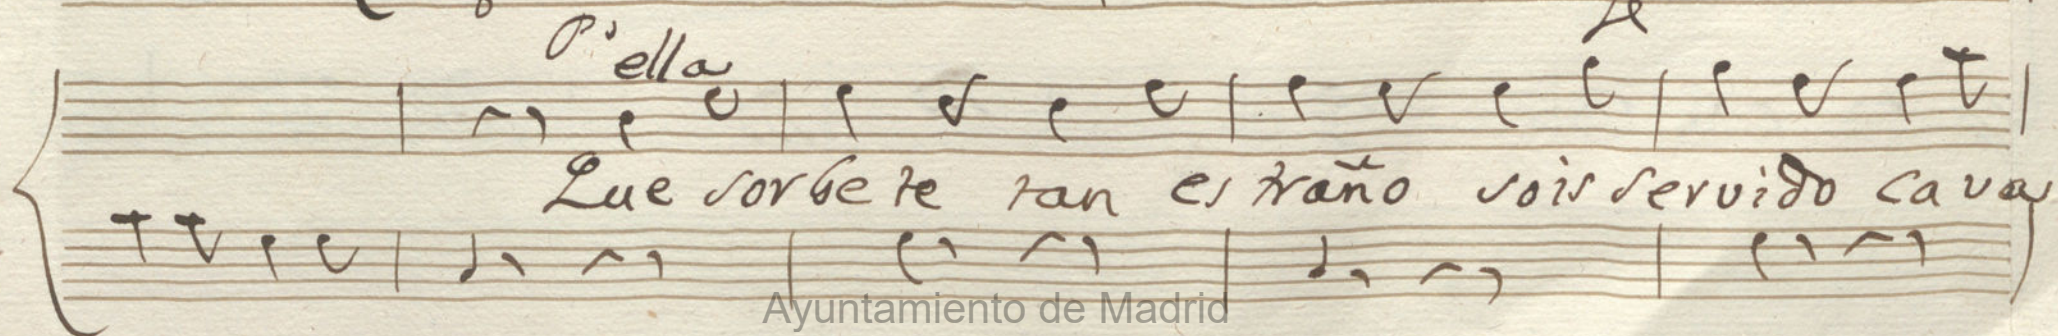 P.º ella
Que sorbete tan estraño sois servido cava
Ayuntamiento de Madrid